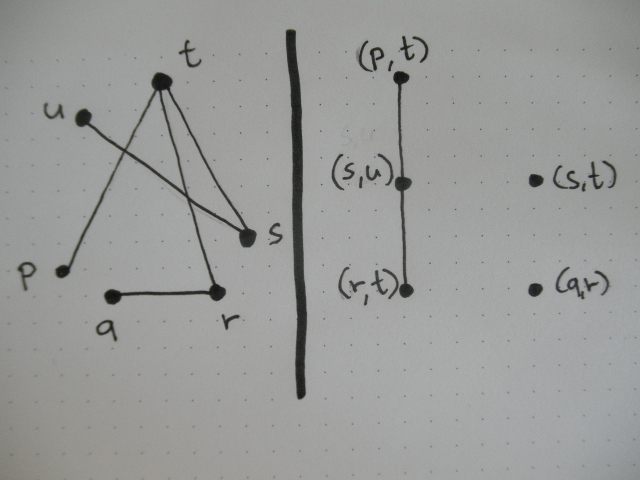 t
u
s
p
q
r
(p,t)
(s,u)
(s,t)
(r,t)
(q,r)